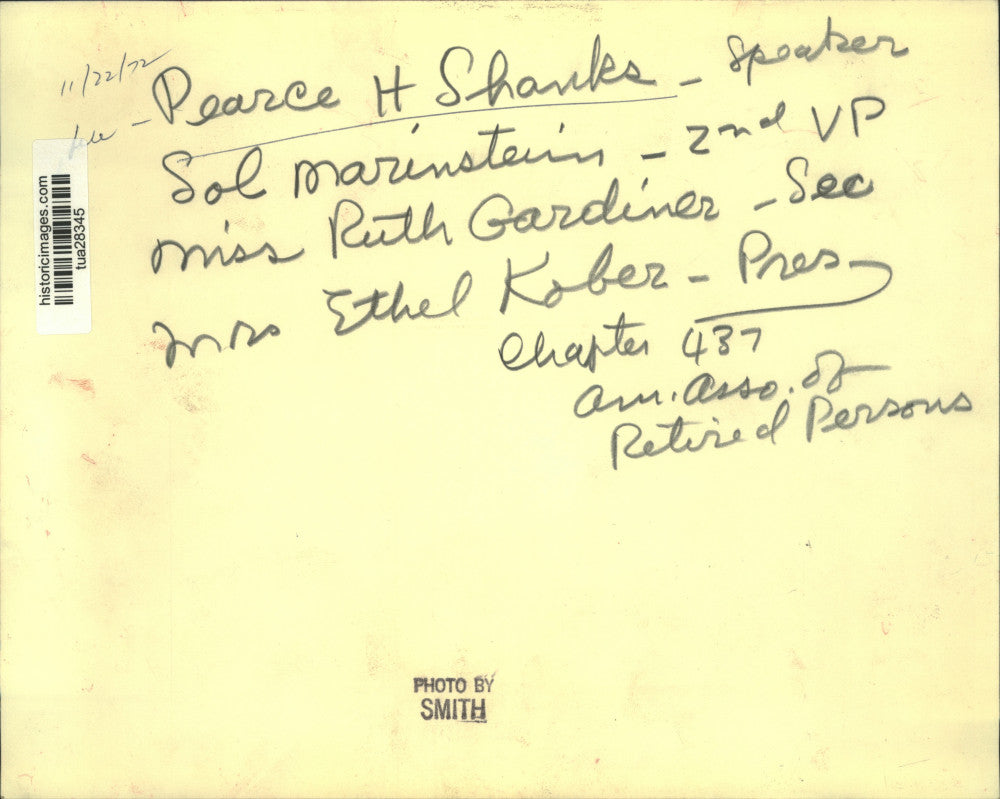 11/22/72
Pearce H Shanks - Speaker
Sol Marinstein - 2nd VP
Miss Ruth Gardiner - Sec
Mrs Ethel Kober - Pres
Chapter 437
Am. Asso. of
Retired Persons
historicimages.com
tua28345
PHOTO BY
SMITH